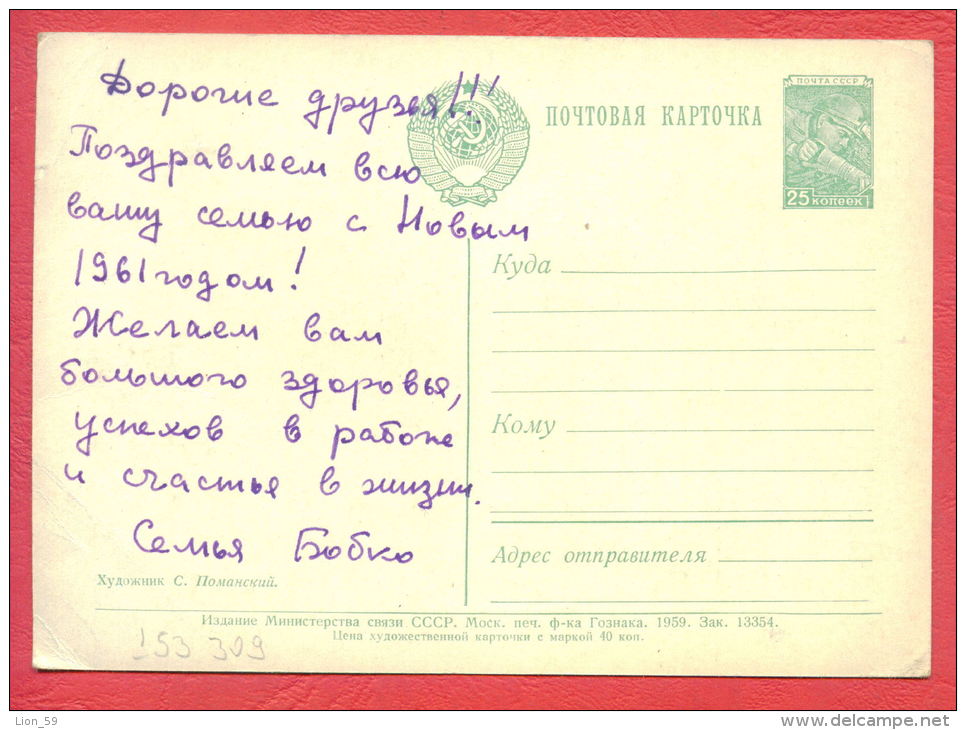 Дорогие друзья!!!
Поздравляем всю
вашу семью с Новым
1961 годом!
Желаем вам
большого здоровья,
успехов в работе
и счастья в жизни.
Семья Бобко
Художник С. Поманский.
ПОЧТОВАЯ КАРТОЧКА
ПОЧТА СССР
25 копеек
Куда
Кому
Адрес отправителя
Издание Министерства связи СССР. Моск. печ. ф-ка Гознака. 1959. Зак. 13354.
Цена художественной карточки с маркой 40 коп.
153 309
Lion_59
www.delcampe.net